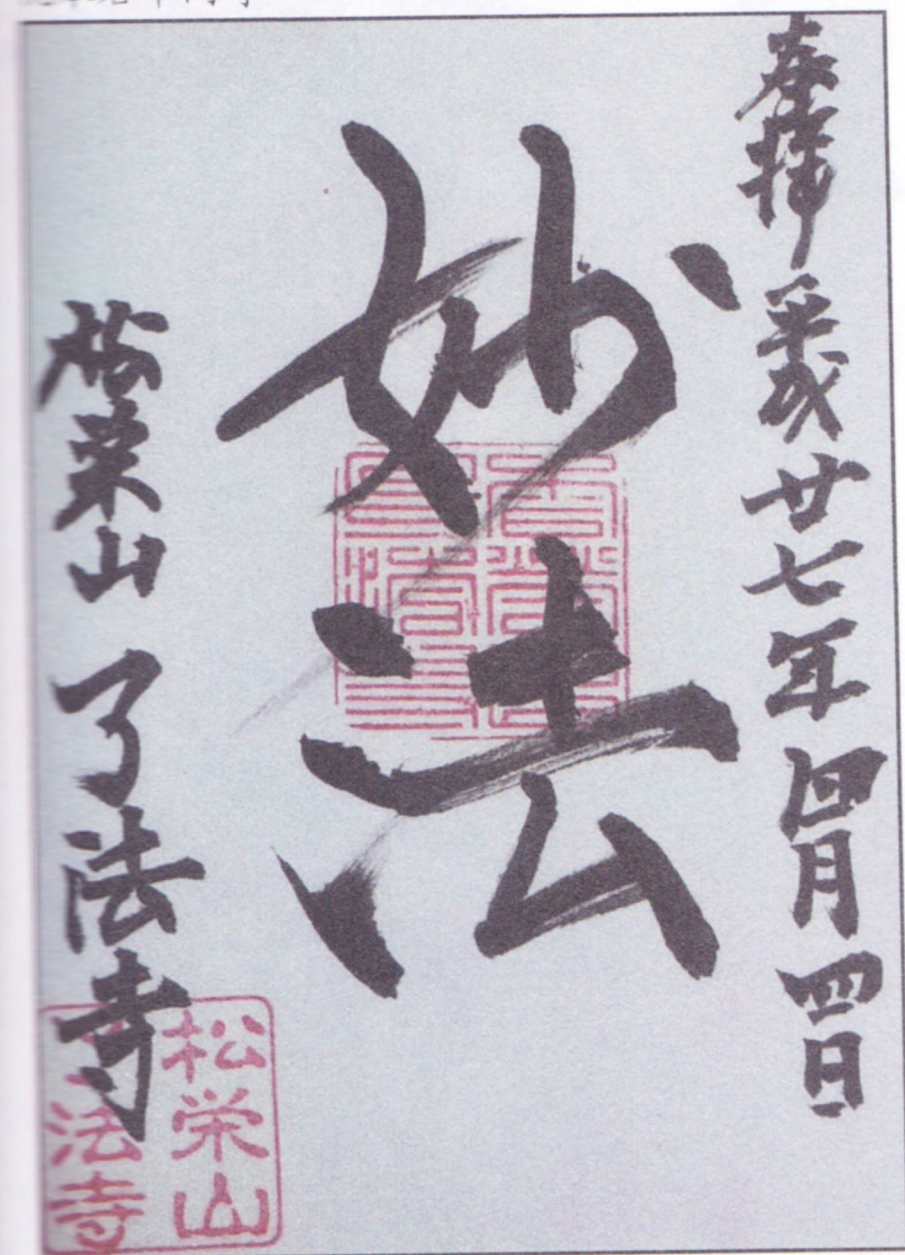 奉拝 平成廿七年四月四日
妙法
松栄山 了法寺
松栄山
了法寺